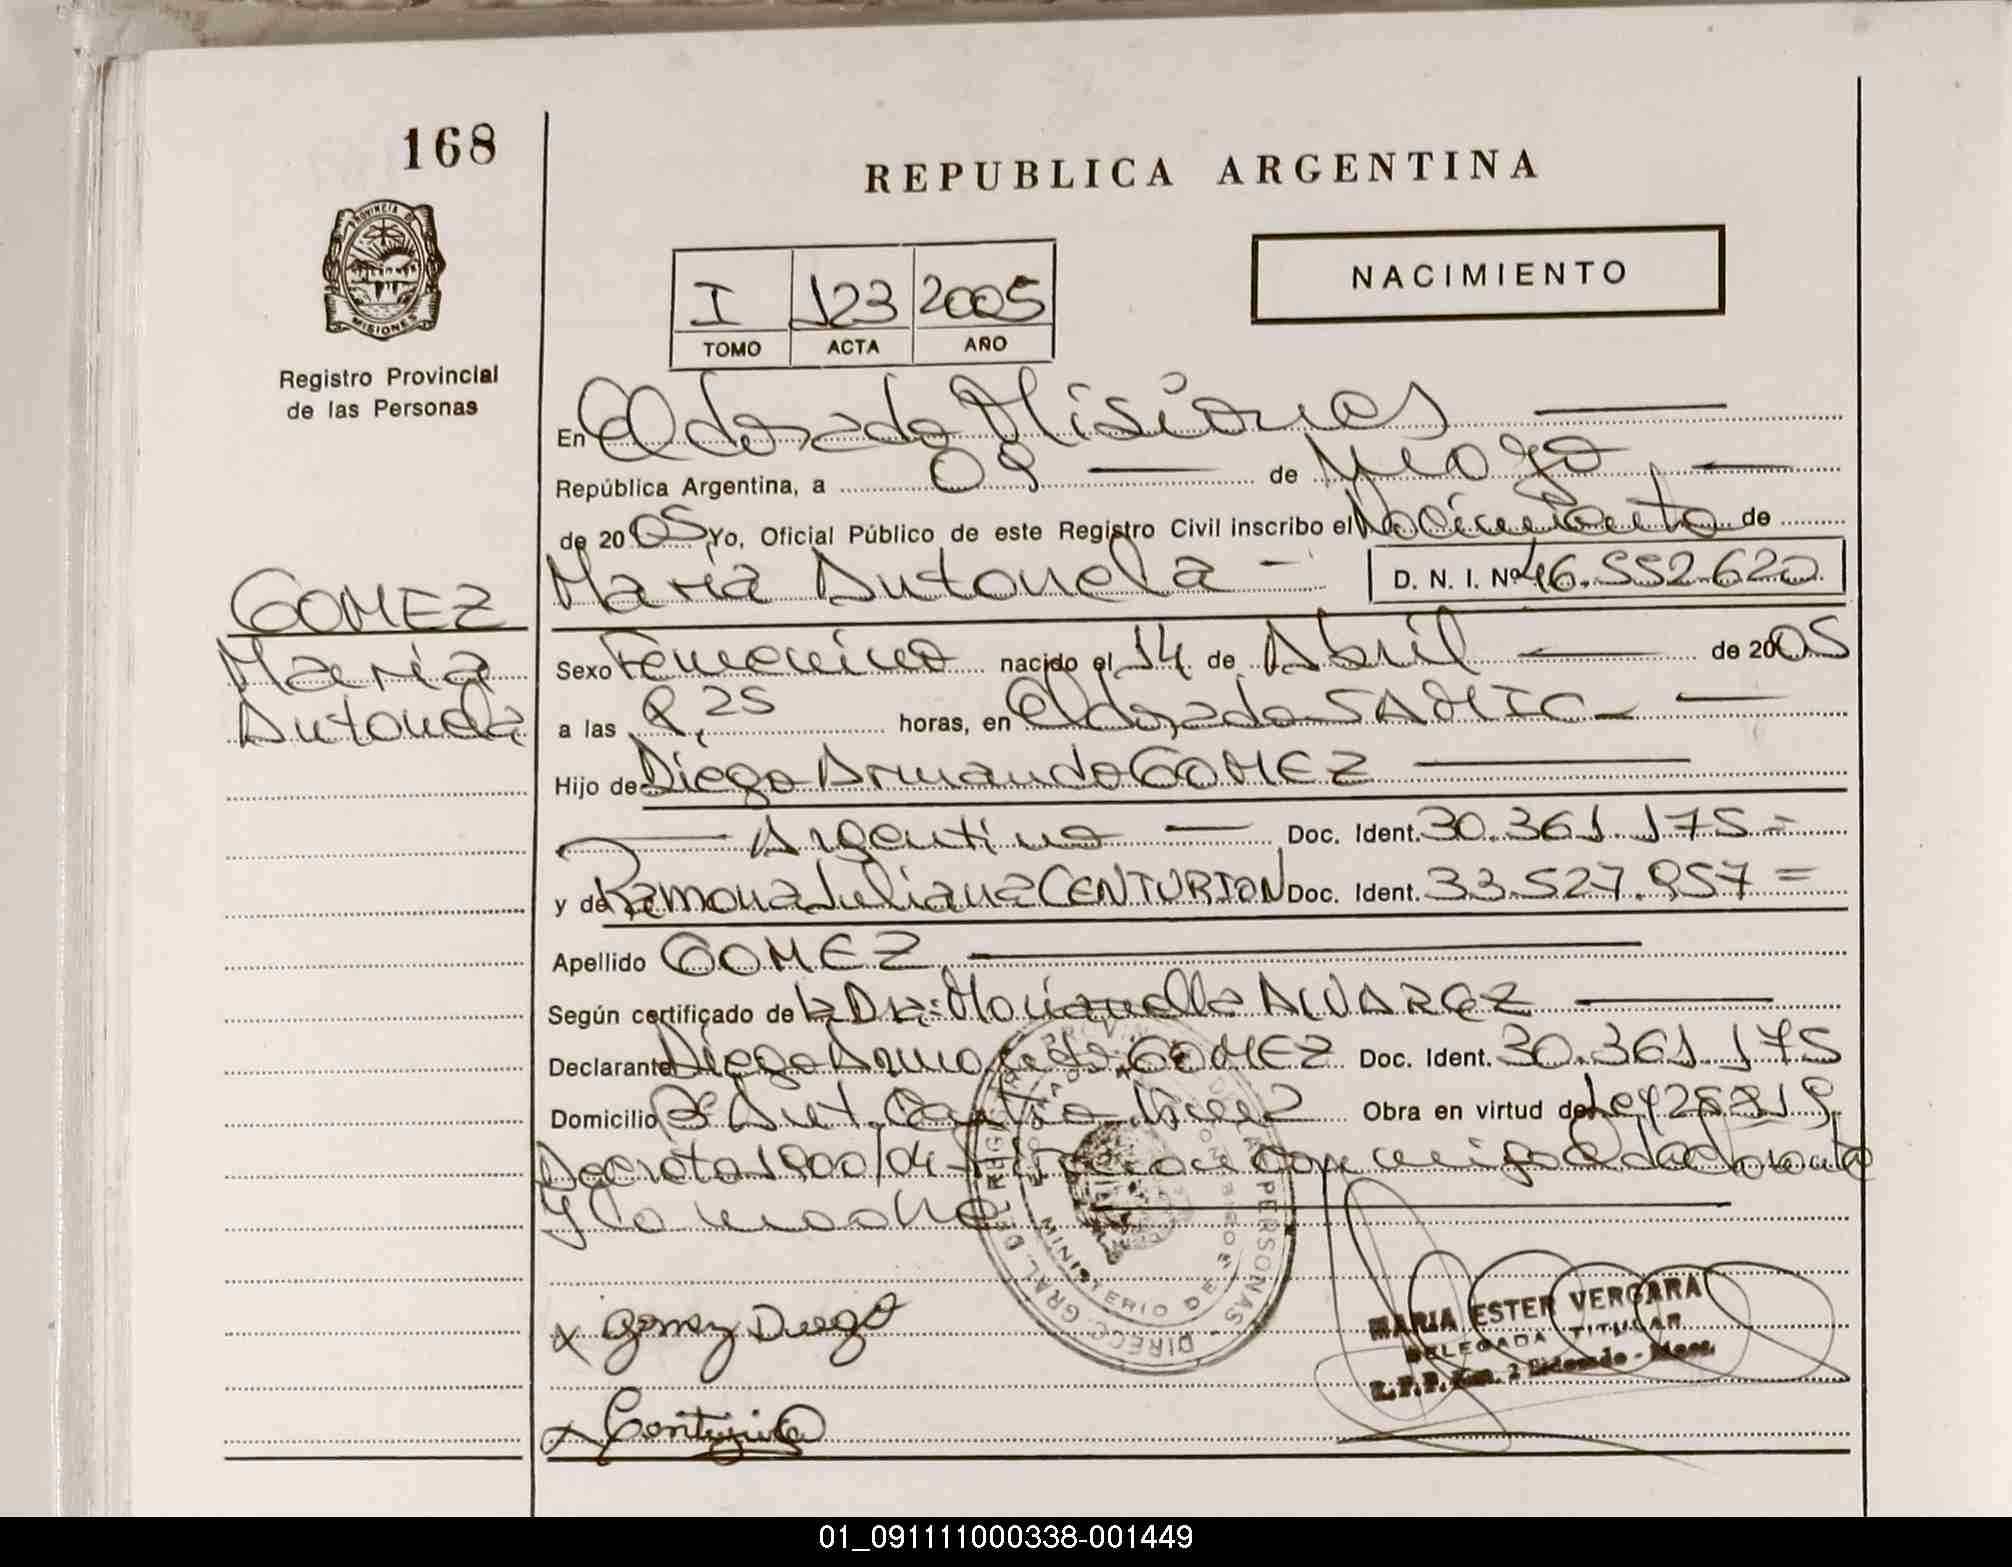 168
REPUBLICA ARGENTINA
PROVINCIA DE MISIONES
Registro Provincial
de las Personas
NACIMIENTO
I 123 2005
TOMO ACTA AÑO
En Eldorado Misiones
República Argentina, a 09 de Mayo
de 2005 Yo, Oficial Público de este Registro Civil inscribo el Nacimiento de
María Antonela D. N. I. Nº 46.552.620
GOMEZ
María
Antonela
Sexo Femenino nacido el 14 de Abril de 2005
a las 8,25 horas, en Eldorado SAMIC
Hijo de Diego Armando GOMEZ
Argentino Doc. Ident. 30.361.175
y de Ramona Juliana CENTURION Doc. Ident. 33.527.857
Apellido GOMEZ
Según certificado de la Dra: ALVAREZ
Declarante Diego Armando GOMEZ Doc. Ident. 30.361.175
Domicilio Obra en virtud de Ley 25819
Decreto 1800/04 Firman conmigo el declarante
y la madre
x Gomez Diego
x Centurion
DIREC. GRAL. DEL REGISTRO PROVINCIAL DE LAS PERSONAS
MINISTERIO DE GOBIERNO
MARIA ESTER VERGARA
DELEGADA TITULAR
R.P.P. Km. 2 Eldorado - Mnes.
01_091111000338-001449